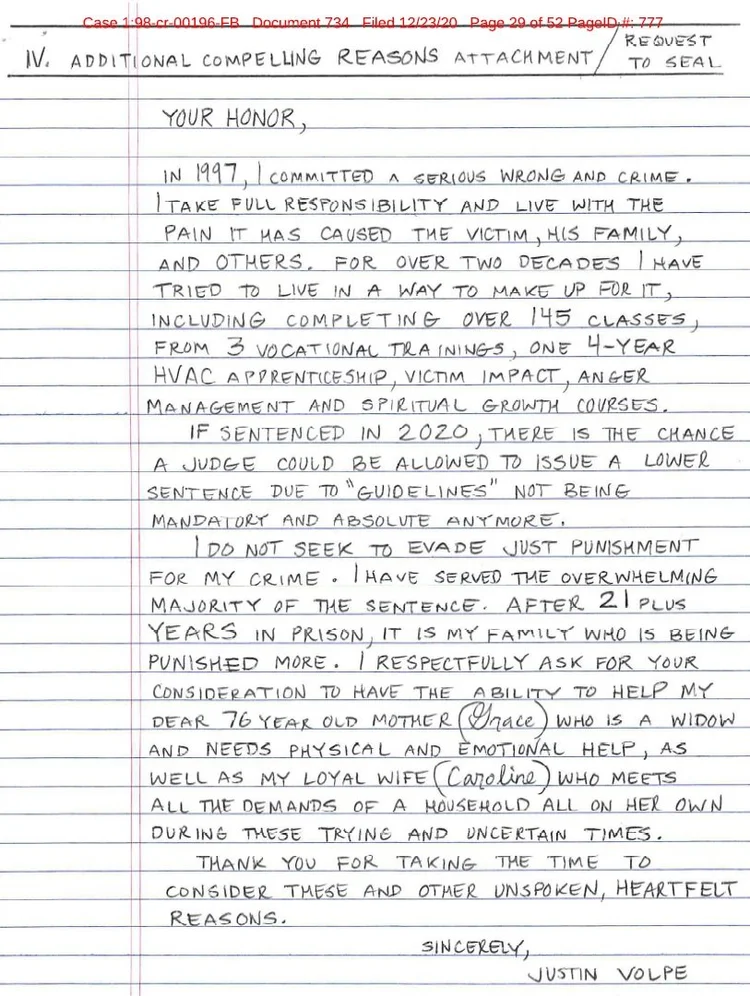 Case 1:98-cr-00196-FB Document 734 Filed 12/23/20 Page 29 of 52 PageID #: 777
IV. ADDITIONAL COMPELLING REASONS ATTACHMENT / REQUEST
TO SEAL
YOUR HONOR,
IN 1997, I COMMITTED A SERIOUS WRONG AND CRIME.
I TAKE FULL RESPONSIBILITY AND LIVE WITH THE
PAIN IT HAS CAUSED THE VICTIM, HIS FAMILY,
AND OTHERS. FOR OVER TWO DECADES I HAVE
TRIED TO LIVE IN A WAY TO MAKE UP FOR IT,
INCLUDING COMPLETING OVER 145 CLASSES,
FROM 3 VOCATIONAL TRAININGS, ONE 4-YEAR
HVAC APPRENTICESHIP, VICTIM IMPACT, ANGER
MANAGEMENT AND SPIRITUAL GROWTH COURSES.
IF SENTENCED IN 2020, THERE IS THE CHANCE
A JUDGE COULD BE ALLOWED TO ISSUE A LOWER
SENTENCE DUE TO "GUIDELINES" NOT BEING
MANDATORY AND ABSOLUTE ANYMORE.
I DO NOT SEEK TO EVADE JUST PUNISHMENT
FOR MY CRIME. I HAVE SERVED THE OVERWHELMING
MAJORITY OF THE SENTENCE. AFTER 21 PLUS
YEARS IN PRISON, IT IS MY FAMILY WHO IS BEING
PUNISHED MORE. I RESPECTFULLY ASK FOR YOUR
CONSIDERATION TO HAVE THE ABILITY TO HELP MY
DEAR 76 YEAR OLD MOTHER (Grace) WHO IS A WIDOW
AND NEEDS PHYSICAL AND EMOTIONAL HELP, AS
WELL AS MY LOYAL WIFE (Caroline) WHO MEETS
ALL THE DEMANDS OF A HOUSEHOLD ALL ON HER OWN
DURING THESE TRYING AND UNCERTAIN TIMES.
THANK YOU FOR TAKING THE TIME TO
CONSIDER THESE AND OTHER UNSPOKEN, HEARTFELT
REASONS.
SINCERELY,
JUSTIN VOLPE